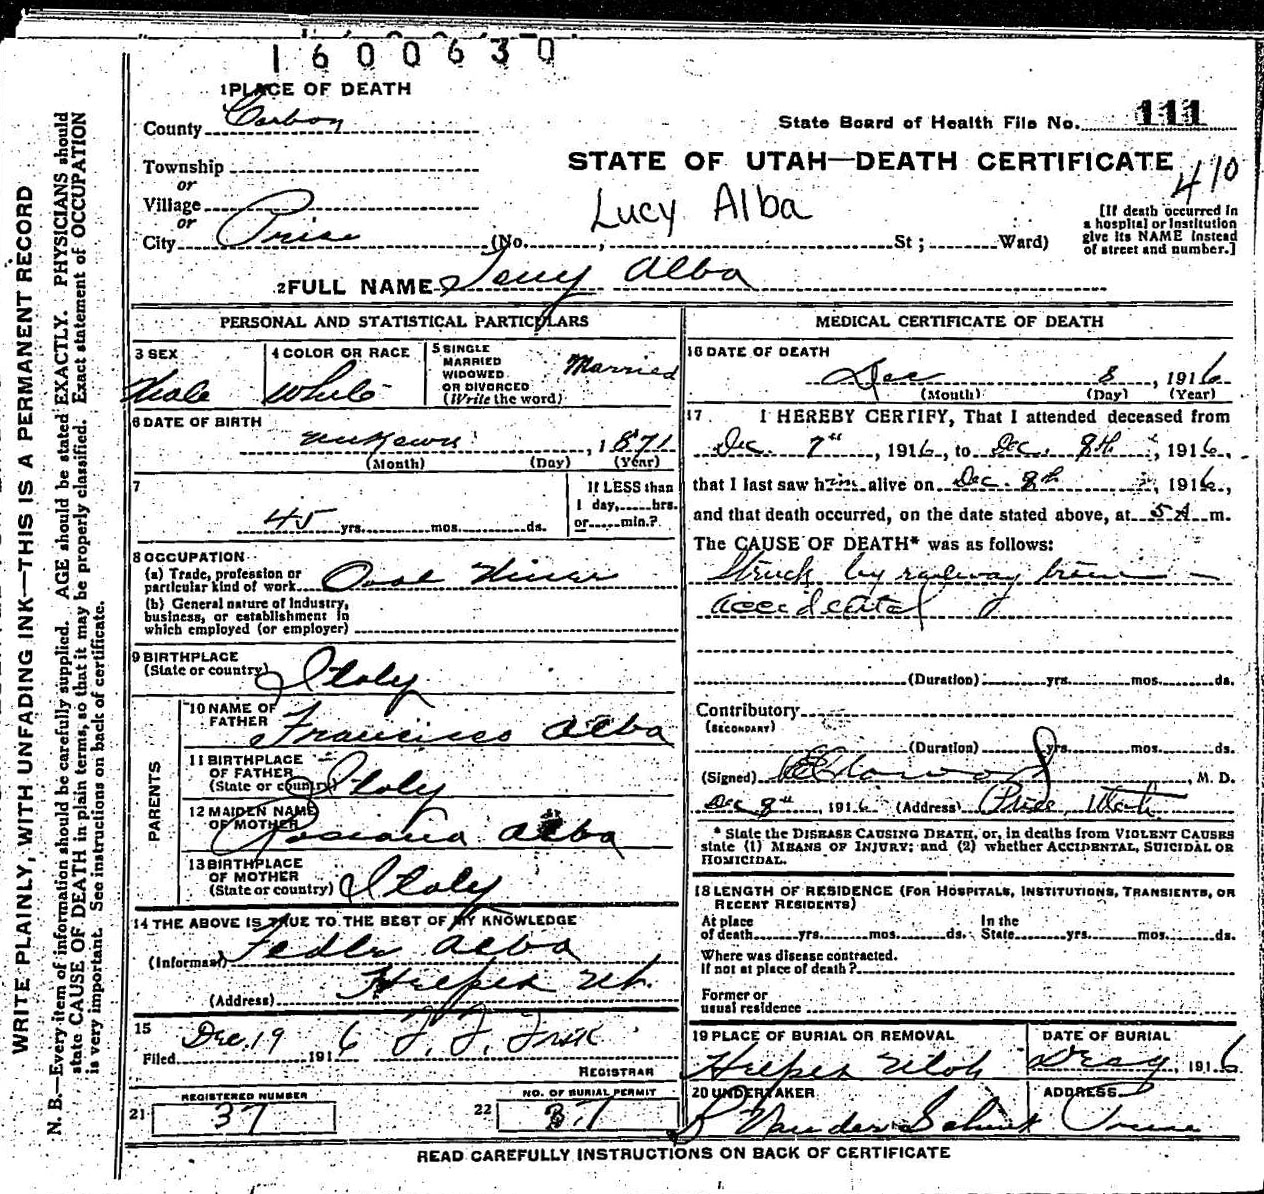 1600630
1 PLACE OF DEATH
County Carbon
State Board of Health File No. 111
Township
or
Village
or
City Price (No. , St ; Ward)
STATE OF UTAH—DEATH CERTIFICATE
410
Lucy Alba
[If death occurred in
a hospital or institution
give its NAME instead
of street and number.]
2 FULL NAME Alba
PERSONAL AND STATISTICAL PARTICULARS
3 SEX
Male
4 COLOR OR RACE
White
5 SINGLE
MARRIED
WIDOWED
OR DIVORCED
(Write the word)
Married
6 DATE OF BIRTH
unknown , 1871
(Month) (Day) (Year)
7
45 yrs. mos. ds.
If LESS than
1 day, hrs.
or min.?
8 OCCUPATION
(a) Trade, profession or
particular kind of work Coal Miner
(b) General nature of Industry,
business, or establishment in
which employed (or employer)
9 BIRTHPLACE
(State or country) Italy
PARENTS
10 NAME OF
FATHER Francisco Alba
11 BIRTHPLACE
OF FATHER
(State or country) Italy
12 MAIDEN NAME
OF MOTHER Alba
13 BIRTHPLACE
OF MOTHER
(State or country) Italy
14 THE ABOVE IS TRUE TO THE BEST OF MY KNOWLEDGE
(Informant) Alba
(Address) Helper Ut.
15
Filed Dec. 19 1916
REGISTRAR
REGISTERED NUMBER
21 37
NO. OF BURIAL PERMIT
22 37
MEDICAL CERTIFICATE OF DEATH
16 DATE OF DEATH
Dec 8 , 1916
(Month) (Day) (Year)
17 I HEREBY CERTIFY, That I attended deceased from
Dec. 7th , 1916, to Dec. 8th , 1916,
that I last saw him alive on Dec. 8th , 1916,
and that death occurred, on the date stated above, at 5 A m.
The CAUSE OF DEATH* was as follows:
Struck by railway train
accidental
(Duration) yrs. mos. ds.
Contributory
(SECONDARY)
(Duration) yrs. mos. ds.
(Signed) , M. D.
Dec 8th , 1916 (Address) Price, Utah
* State the DISEASE CAUSING DEATH, or, in deaths from VIOLENT CAUSES
state (1) MEANS OF INJURY; and (2) whether ACCIDENTAL, SUICIDAL OR
HOMICIDAL.
18 LENGTH OF RESIDENCE (FOR HOSPITALS, INSTITUTIONS, TRANSIENTS, OR
RECENT RESIDENTS)
At place
of death yrs. mos. ds.
In the
State yrs. mos. ds.
Where was disease contracted.
If not at place of death?
Former or
usual residence
19 PLACE OF BURIAL OR REMOVAL
Helper Utah
DATE OF BURIAL
, 1916
20 UNDERTAKER
ADDRESS
Price
READ CAREFULLY INSTRUCTIONS ON BACK OF CERTIFICATE
WRITE PLAINLY, WITH UNFADING INK—THIS IS A PERMANENT RECORD
N. B.—Every item of information should be carefully supplied. AGE should be stated EXACTLY. PHYSICIANS should
state CAUSE OF DEATH in plain terms, so that it may be properly classified. Exact statement of OCCUPATION
is very important. See instructions on back of certificate.